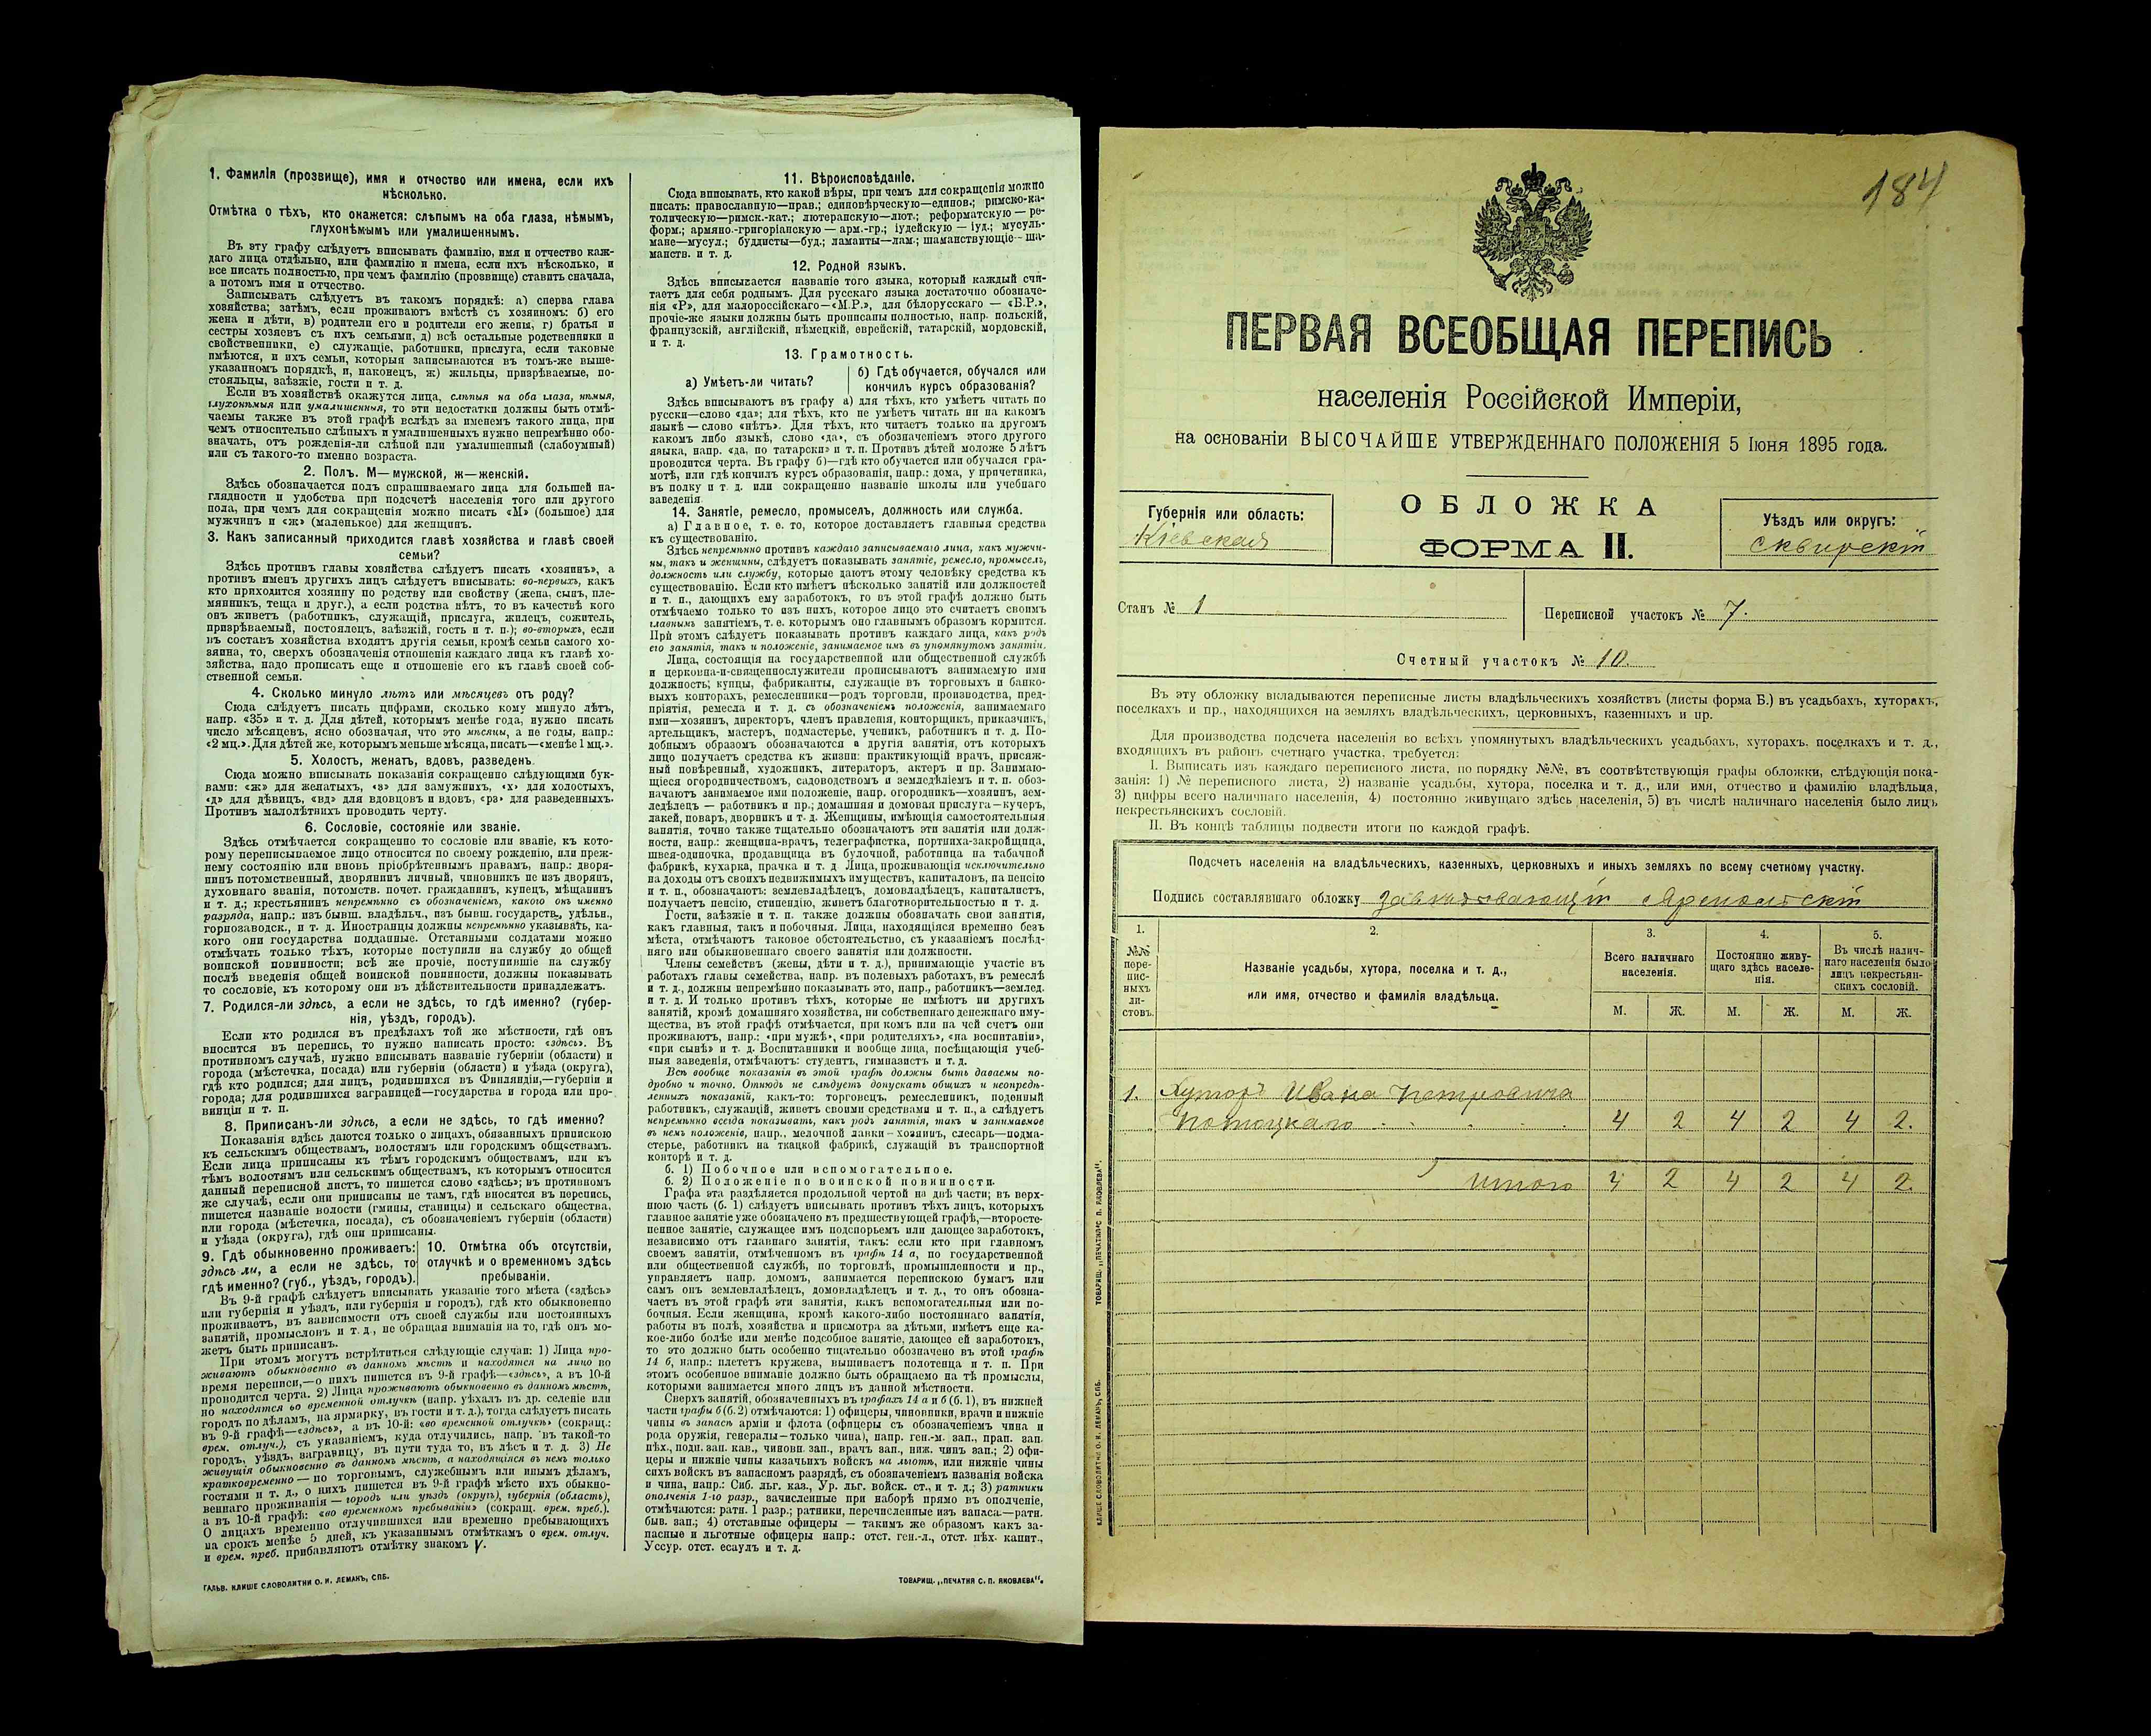 1. Фамилія (прозвище), имя и отчество или имена, если ихъ
нѣсколько.
Отмѣтка о тѣхъ, кто окажется: слѣпымъ на оба глаза, нѣмымъ,
глухонѣмымъ или умалишеннымъ.
Въ эту графу слѣдуетъ вписывать фамилію, имя и отчество каж-
даго лица отдѣльно, или фамилію и имена, если ихъ нѣсколько, и
все писать полностью, при чемъ фамилію (прозвище) ставить сначала,
а потомъ имя и отчество.
Записывать слѣдуетъ въ такомъ порядкѣ: а) сперва глава
хозяйства; затѣмъ, если проживаютъ вмѣстѣ съ хозяиномъ: б) его
жена и дѣти, в) родители его и родители его жены, г) братья и
сестры хозяевъ съ ихъ семьями, д) всѣ остальные родственники и
свойственники, е) служащіе, работники, прислуга, если таковые
имѣются, и ихъ семьи, которыя записываются въ томъ-же выше-
указанномъ порядкѣ, и, наконецъ, ж) жильцы, призрѣваемые, по-
стояльцы, заѣзжіе, гости и т. д.
Если въ хозяйствѣ окажутся лица, слѣпыя на оба глаза, нѣмыя,
глухонѣмыя или умалишенныя, то эти недостатки должны быть отмѣ-
чаемы также въ этой графѣ вслѣдъ за именемъ такого лица, при
чемъ относительно слѣпыхъ и умалишенныхъ нужно непремѣнно обо-
значать, отъ рожденія-ли слѣпой или умалишенный (слабоумный)
или съ такого-то именно возраста.
2. Полъ. М—мужской, ж—женскій.
Здѣсь обозначается полъ спрашиваемаго лица для большей на-
глядности и удобства при подсчетѣ населенія того или другого
пола, при чемъ для сокращенія можно писать «М» (большое) для
мужчинъ и «ж» (маленькое) для женщинъ.
3. Какъ записанный приходится главѣ хозяйства и главѣ своей
семьи?
Здѣсь противъ главы хозяйства слѣдуетъ писать «хозяинъ», а
противъ именъ другихъ лицъ слѣдуетъ вписывать: во-первыхъ, какъ
кто приходится хозяину по родству или свойству (жена, сынъ, пле-
мянникъ, теща и друг.), а если родства нѣтъ, то въ качествѣ кого
онъ живетъ (работникъ, служащій, прислуга, жилецъ, сожитель,
призрѣваемый, постоялецъ, заѣзжій, гость и т. п.); во-вторыхъ, если
въ составъ хозяйства входятъ другія семьи, кромѣ семьи самого хо-
зяина, то, сверхъ обозначенія отношенія каждаго лица къ главѣ хо-
зяйства, надо прописать еще и отношеніе его къ главѣ своей соб-
ственной семьи.
4. Сколько минуло лѣтъ или мѣсяцевъ отъ роду?
Сюда слѣдуетъ писать цифрами, сколько кому минуло лѣтъ,
напр. «35» и т. д. Для дѣтей, которымъ менѣе года, нужно писать
число мѣсяцевъ, ясно обозначая, что это мѣсяцы, а не годы, напр.:
«2 мц.». Для дѣтей же, которымъ меньше мѣсяца, писать—«менѣе 1 мц.».
5. Холостъ, женатъ, вдовъ, разведенъ.
Сюда можно вписывать показанія сокращенно слѣдующими бук-
вами: «ж» для женатыхъ, «з» для замужнихъ, «х» для холостыхъ,
«д» для дѣвицъ, «вд» для вдовцовъ и вдовъ, «рз» для разведенныхъ.
Противъ малолѣтнихъ проводить черту.
6. Сословіе, состояніе или званіе.
Здѣсь отмѣчается сокращенно то сословіе или званіе, къ кото-
рому переписываемое лицо относится по своему рожденію, или преж-
нему состоянію или вновь пріобрѣтеннымъ правамъ, напр.: дворя-
нинъ потомственный, дворянинъ личный, чиновникъ не изъ дворянъ,
духовнаго званія, потомств. почет. гражданинъ, купецъ, мѣщанинъ
и т. д.; крестьянинъ непремѣнно съ обозначеніемъ, какого онъ именно
разряда, напр.: изъ бывш. владѣльч., изъ бывш. государств., удѣльн.,
горнозаводск., и т. д. Иностранцы должны непремѣнно указывать, ка-
кого они государства подданные. Отставными солдатами можно
отмѣчать только тѣхъ, которые поступили на службу до общей
воинской повинности; всѣ же прочіе, поступившіе на службу
послѣ введенія общей воинской повинности, должны показывать
то сословіе, къ которому они въ дѣйствительности принадлежатъ.
7. Родился-ли здѣсь, а если не здѣсь, то гдѣ именно? (губер-
нія, уѣздъ, городъ).
Если кто родился въ предѣлахъ той же мѣстности, гдѣ онъ
вносится въ перепись, то нужно написать просто: «здѣсь». Въ
противномъ случаѣ, нужно вписывать названіе губерніи (области) и
города (мѣстечка, посада) или губерніи (области) и уѣзда (округа),
гдѣ кто родился; для лицъ, родившихся въ Финляндіи,—губерніи и
города; для родившихся заграницей—государства и города или про-
винціи и т. п.
8. Приписанъ-ли здѣсь, а если не здѣсь, то гдѣ именно?
Показанія здѣсь даются только о лицахъ, обязанныхъ припискою
къ сельскимъ обществамъ, волостямъ или городскимъ обществамъ.
Если лица приписаны къ тѣмъ городскимъ обществамъ, или къ
тѣмъ волостямъ или сельскимъ обществамъ, къ которымъ относится
данный переписной листъ, то пишется слово «здѣсь»; въ противномъ
же случаѣ, если они приписаны не тамъ, гдѣ вносятся въ перепись,
пишется названіе волости (гмины, станицы) и сельскаго общества,
или города (мѣстечка, посада), съ обозначеніемъ губерніи (области)
и уѣзда (округа), гдѣ они приписаны.
9. Гдѣ обыкновенно проживаетъ:
здѣсь ли, а если не здѣсь, то
гдѣ именно? (губ., уѣздъ, городъ).
10. Отмѣтка объ отсутствіи,
отлучкѣ и о временномъ здѣсь
пребываніи.
Въ 9-й графѣ слѣдуетъ вписывать указаніе того мѣста («здѣсь»
или губернія и уѣздъ, или губернія и городъ), гдѣ кто обыкновенно
проживаетъ, въ зависимости отъ своей службы или постоянныхъ
занятій, промысловъ и т. д., не обращая вниманія на то, гдѣ онъ мо-
жетъ быть приписанъ.
При этомъ могутъ встрѣтиться слѣдующіе случаи: 1) Лица про-
живаютъ обыкновенно въ данномъ мѣстѣ и находятся на лицо во
время переписи,—о нихъ пишется въ 9-й графѣ—«здѣсь», а въ 10-й
проводится черта. 2) Лица проживаютъ обыкновенно въ данномъ мѣстѣ,
но находятся во временной отлучкѣ (напр. уѣхалъ въ др. селеніе или
городъ по дѣламъ, на ярмарку, въ гости и т. д.), тогда слѣдуетъ писать
въ 9-й графѣ—«здѣсь», а въ 10-й: «во временной отлучкѣ» (сокращ.:
врем. отлуч.), съ указаніемъ, куда отлучились, напр. въ такой-то
городъ, уѣздъ, заграницу, въ пути туда то, въ лѣсъ и т. д. 3) Не
живущія обыкновенно въ данномъ мѣстѣ, а находящіяся въ немъ только
кратковременно — по торговымъ, служебнымъ или инымъ дѣламъ,
гостями и т. д., о нихъ пишется въ 9-й графѣ мѣсто ихъ обыкно-
веннаго проживанія — городъ или уѣздъ (округъ), губернія (область),
а въ 10-й графѣ: «во временномъ пребываніи» (сокращ. врем. преб.).
О лицахъ временно отлучившихся или временно пребывающихъ
на срокъ менѣе 5 дней, къ указаннымъ отмѣткамъ о врем. отлуч.
и врем. преб. прибавляютъ отмѣтку знакомъ V.
ГАЛЬВ. КЛИШЕ СЛОВОЛИТНИ О. И. ЛЕМАНЪ, СПБ.
11. Вѣроисповѣданіе.
Сюда вписывать, кто какой вѣры, при чемъ для сокращенія можно
писать: православную—прав.; единовѣрческую—единов.; римско-ка-
толическую—римск.-кат.; лютеранскую—лют.; реформатскую — ре-
форм.; армяно.-григоріанскую — арм.-гр.; іудейскую — іуд.; мусуль-
мане—мусул.; буддисты—буд.; ламаиты—лам.; шаманствующіе— ша-
манств. и т. д.
12. Родной языкъ.
Здѣсь вписывается названіе того языка, который каждый счи-
таетъ для себя роднымъ. Для русскаго языка достаточно обозначе-
нія «Р», для малороссійскаго—«М.Р.», для бѣлорусскаго — «Б.Р.»,
прочіе-же языки должны быть прописаны полностью, напр. польскій,
французскій, англійскій, нѣмецкій, еврейскій, татарскій, мордовскій,
и т. д.
13. Грамотность.
а) Умѣетъ-ли читать?
б) Гдѣ обучается, обучался или
кончилъ курсъ образованія?
Здѣсь вписываютъ въ графу а) для тѣхъ, кто умѣетъ читать по
русски—слово «да»; для тѣхъ, кто не умѣетъ читать ни на какомъ
языкѣ — слово «нѣтъ». Для тѣхъ, кто читаетъ только на другомъ
какомъ либо языкѣ, слово «да», съ обозначеніемъ этого другого
языка, напр. «да, по татарски» и т. п. Противъ дѣтей моложе 5 лѣтъ
проводится черта. Въ графу б)—гдѣ кто обучается или обучался гра-
мотѣ, или гдѣ кончилъ курсъ образованія, напр.: дома, у причетника,
въ полку и т. д. или сокращенно названіе школы или учебнаго
заведенія.
14. Занятіе, ремесло, промыселъ, должность или служба.
а) Главное, т. е. то, которое доставляетъ главныя средства
къ существованію.
Здѣсь непремѣнно противъ каждаго записываемаго лица, какъ мужчи-
ны, такъ и женщины, слѣдуетъ показывать занятіе, ремесло, промыселъ,
должность или службу, которые даютъ этому человѣку средства къ
существованію. Если кто имѣетъ нѣсколько занятій или должностей
и т. п., дающихъ ему заработокъ, то въ этой графѣ должно быть
отмѣчаемо только то изъ нихъ, которое лицо это считаетъ своимъ
главнымъ занятіемъ, т. е. которымъ оно главнымъ образомъ кормится.
При этомъ слѣдуетъ показывать противъ каждаго лица, какъ родъ
его занятія, такъ и положеніе, занимаемое имъ въ упомянутомъ занятіи.
Лица, состоящія на государственной или общественной службѣ
и церковно-и-священнослужители прописываютъ занимаемую ими
должность; купцы, фабриканты, служащіе въ торговыхъ и банко-
выхъ конторахъ, ремесленники—родъ торговли, производства, пред-
пріятія, ремесла и т. д. съ обозначеніемъ положенія, занимаемаго
ими—хозяинъ, директоръ, членъ правленія, конторщикъ, приказчикъ,
артельщикъ, мастеръ, подмастерье, ученикъ, работникъ и т. д. По-
добнымъ образомъ обозначаются и другія занятія, отъ которыхъ
лицо получаетъ средства къ жизни: практикующій врачъ, присяж-
ный повѣренный, художникъ, литераторъ, актеръ и пр. Занимаю-
щіеся огородничествомъ, садоводствомъ и земледѣліемъ и т. п. обоз-
начаютъ занимаемое ими положеніе, напр. огородникъ—хозяинъ, зем-
ледѣлецъ — работникъ и пр.; домашняя и домовая прислуга—кучеръ,
лакей, поваръ, дворникъ и т. д. Женщины, имѣющія самостоятельныя
занятія, точно также тщательно обозначаютъ эти занятія или долж-
ности, напр.: женщина-врачъ, телеграфистка, портниха-закройщица,
швея-одиночка, продавщица въ булочной, работница на табачной
фабрикѣ, кухарка, прачка и т. д. Лица, проживающія исключительно
на доходы отъ своихъ недвижимыхъ имуществъ, капиталовъ, на пенсію
и т. п., обозначаютъ: землевладѣлецъ, домовладѣлецъ, капиталистъ,
получаетъ пенсію, стипендію, живетъ благотворительностью и т. д.
Гости, заѣзжіе и т. п. также должны обозначать свои занятія,
какъ главныя, такъ и побочныя. Лица, находящіяся временно безъ
мѣста, отмѣчаютъ таковое обстоятельство, съ указаніемъ послѣд-
няго или обыкновеннаго своего занятія или должности.
Члены семействъ (жены, дѣти и т. д.), принимающіе участіе въ
работахъ главы семейства, напр. въ полевыхъ работахъ, въ ремеслѣ
и т. д., должны непремѣнно показывать это, напр., работникъ—землед.
и т. д. И только противъ тѣхъ, которые не имѣютъ ни другихъ
занятій, кромѣ домашняго хозяйства, ни собственнаго денежнаго иму-
щества, въ этой графѣ отмѣчается, при комъ или на чей счетъ они
проживаютъ, напр.: «при мужѣ», «при родителяхъ», «на воспитаніи»,
«при сынѣ» и т. д. Воспитанники и вообще лица, посѣщающія учеб-
ныя заведенія, отмѣчаютъ: студентъ, гимназистъ и т. д.
Всѣ вообще показанія въ этой графѣ должны быть даваемы по-
дробно и точно. Отнюдь не слѣдуетъ допускать общихъ и неопредѣ-
ленныхъ показаній, какъ-то: торговецъ, ремесленникъ, поденный
работникъ, служащій, живетъ своими средствами и т. п., а слѣдуетъ
непремѣнно всегда показывать, какъ родъ занятія, такъ и занимаемое
въ немъ положеніе, напр., мелочной лавки — хозяинъ, слесарь—подма-
стерье, работникъ на ткацкой фабрикѣ, служащій въ транспортной
конторѣ и т. д.
б. 1) Побочное или вспомогательное.
б. 2) Положеніе по воинской повинности.
Графа эта раздѣляется продольной чертой на двѣ части; въ верх-
нюю часть (б. 1) слѣдуетъ вписывать противъ тѣхъ лицъ, которыхъ
главное занятіе уже обозначено въ предшествующей графѣ,—второсте-
пенное занятіе, служащее имъ подспорьемъ или дающее заработокъ,
независимо отъ главнаго занятія, такъ: если кто при главномъ
своемъ занятіи, отмѣченномъ въ графѣ 14 а, по государственной
или общественной службѣ, по торговлѣ, промышленности и пр.,
управляетъ напр. домомъ, занимается перепискою бумагъ или
самъ онъ землевладѣлецъ, домовладѣлецъ и т. д., то онъ обозна-
чаетъ въ этой графѣ эти занятія, какъ вспомогательныя или по-
бочныя. Если женщина, кромѣ какого-либо постояннаго занятія,
работы въ полѣ, хозяйства и присмотра за дѣтьми, имѣетъ еще ка-
кое-либо болѣе или менѣе подсобное занятіе, дающее ей заработокъ,
то это должно быть особенно тщательно обозначено въ этой графѣ
14 б, напр.: плететъ кружева, вышиваетъ полотенца и т. п. При
этомъ особенное вниманіе должно быть обращаемо на тѣ промыслы,
которыми занимается много лицъ въ данной мѣстности.
Сверхъ занятій, обозначенныхъ въ графахъ 14 а и б (б. 1), въ нижней
части графы б (б. 2) отмѣчаются: 1) офицеры, чиновники, врачи и нижніе
чины въ запасѣ арміи и флота (офицеры съ обозначеніемъ чина и
рода оружія, генералы—только чина), напр. ген.-м. зап., прап. зап.
пѣх., подп. зап. кав., чиновн. зап., врачъ зап., ниж. чинъ зап.; 2) офи-
церы и нижніе чины казачьихъ войскъ на льготѣ, или нижніе чины
сихъ войскъ въ запасномъ разрядѣ, съ обозначеніемъ названія войска
и чина, напр.: Сиб. льг. каз., Ур. льг. войск. ст., и т. д.; 3) ратники
ополченія 1-го разр., зачисленные при наборѣ прямо въ ополченіе,
отмѣчаются: ратн. 1 разр.; ратники, перечисленные изъ запаса.—ратн.
быв. зап.; 4) отставные офицеры — такимъ же образомъ какъ за-
пасные и льготные офицеры напр.: отст. ген.-л., отст. пѣх. капит.,
Уссур. отст. есаулъ и т. д.
ТОВАРИЩ. „ПЕЧАТНЯ С. П. ЯКОВЛЕВА".
184
ПЕРВАЯ ВСЕОБЩАЯ ПЕРЕПИСЬ
населенія Россійской Имперіи,
на основаніи ВЫСОЧАЙШЕ УТВЕРЖДЕННАГО ПОЛОЖЕНІЯ 5 Іюня 1895 года.
Губернія или область:
Кіевская
ОБЛОЖКА
ФОРМА II.
Уѣздъ или округъ:
Сквирскій
Станъ № 1
Переписной участокъ № 7.
Счетный участокъ № 10.
Въ эту обложку вкладываются переписные листы владѣльческихъ хозяйствъ (листы форма Б.) въ усадьбахъ, хуторахъ,
поселкахъ и пр., находящихся на земляхъ владѣльческихъ, церковныхъ, казенныхъ и пр.
Для производства подсчета населенія во всѣхъ упомянутыхъ владѣльческихъ усадьбахъ, хуторахъ, поселкахъ и т. д.,
входящихъ въ районъ счетнаго участка, требуется:
I. Выписать изъ каждаго переписного листа, по порядку №№, въ соотвѣтствующія графы обложки, слѣдующія пока-
занія: 1) № переписного листа, 2) названіе усадьбы, хутора, поселка и т. д., или имя, отчество и фамилію владѣльца,
3) цифры всего наличнаго населенія, 4) постоянно живущаго здѣсь населенія, 5) въ числѣ наличнаго населенія было лицъ
некрестьянскихъ сословій.
II. Въ концѣ таблицы подвести итоги по каждой графѣ.
Подсчетъ населенія на владѣльческихъ, казенныхъ, церковныхъ и иныхъ земляхъ по всему счетному участку.
Подпись составлявшаго обложку завѣдывающій
1. 2. 3. 4. 5.
№№ пере-пис-ныхъ ли-стовъ.
Названіе усадьбы, хутора, поселка и т. д.,
или имя, отчество и фамилія владѣльца.
Всего наличнаго населенія.
Постоянно живу-щаго здѣсь населе-нія.
Въ числѣ налич-наго населенія было лицъ некрестьян-скихъ сословій.
М. Ж. М. Ж. М. Ж.
1. Хуторъ Ивана Петровича
Потоцкаго 4 2 4 2 4 2.
Итого 4 2 4 2 4 2.
ТОВАРИЩ. „ПЕЧАТНЯ С. П. ЯКОВЛЕВА".
КЛИШЕ СЛОВОЛИТНИ О. И. ЛЕМАНЪ, СПБ.